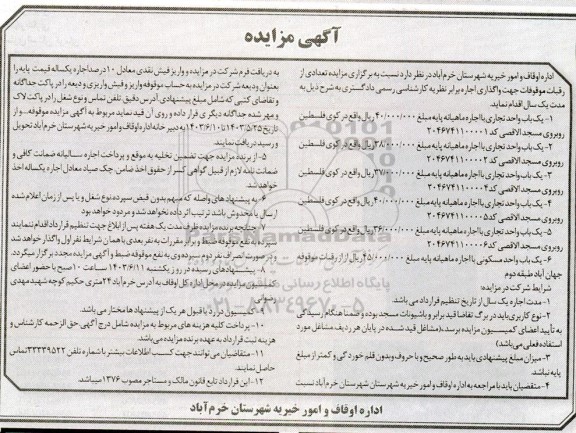 آگهی مزایده
اداره اوقاف و امور خیریه شهرستان خرم‌آباد در نظر دارد نسبت به برگزاری مزایده تعدادی از
رقبات موقوفات جهت واگذاری اجاره برابر نظریه کارشناسی رسمی دادگستری به شرح ذیل به
مدت یک سال اقدام نماید.
۱- یک باب واحد تجاری با اجاره ماهیانه پایه مبلغ ۴۰/۰۰۰/۰۰۰ ریال واقع در کوی فلسطین
روبروی مسجد الاقصی کد ۲۰۴۶۷۴۱۱۰۰۰۰۱
۲- یک باب واحد تجاری با اجاره ماهیانه پایه مبلغ ۳۸/۰۰۰/۰۰۰ ریال واقع در کوی فلسطین
روبروی مسجد الاقصی کد ۲۰۴۶۷۴۱۱۰۰۰۰۲
۳- یک باب واحد تجاری با اجاره ماهیانه پایه مبلغ ۳۷/۰۰۰/۰۰۰ ریال واقع در کوی فلسطین
روبروی مسجد الاقصی کد ۲۰۴۶۷۴۱۱۰۰۰۰۴
۴- یک باب واحد تجاری با اجاره ماهیانه پایه مبلغ ۴۰/۰۰۰/۰۰۰ ریال واقع در کوی فلسطین
روبروی مسجد الاقصی کد ۲۰۴۶۷۴۱۱۰۰۰۰۵
۵- یک باب واحد تجاری با اجاره ماهیانه پایه مبلغ ۳۶/۰۰۰/۰۰۰ ریال واقع در کوی فلسطین
روبروی مسجد الاقصی کد ۲۰۴۶۷۴۱۱۰۰۰۰۶
۶- یک باب واحد مسکونی با اجاره ماهیانه پایه مبلغ ۴۵/۰۰۰/۰۰۰ ریال از رقبات موقوفه
جهان آباد طبقه دوم
شرایط شرکت در مزایده:
۱- مدت اجاره یک سال از تاریخ تنظیم قرارداد می باشد.
۲- نوع کاربری باید در برگ تقاضا قید برابر و با شئونات مسجد بوده و ضمنا هنگام رسیدگی
به تأیید اعضای کمیسیون مزایده برسد.(مشاغل قید شده در پایان هر ردیف مشاغل مورد
استفاده فعلی می باشد)
۳- میزان مبلغ پیشنهادی باید به طور صحیح و با حروف و بدون قلم خوردگی و کمتر از مبلغ
پایه نباشد.
۴- متقضیان باید با مراجعه به اداره اوقاف و امور خیریه شهرستان شهرستان خرم آباد نسبت
به دریافت فرم شرکت در مزایده و واریز فیش نقدی معادل ۱۰ درصد اجاره یکساله قیمت پایه را
بعنوان ودیعه شرکت در مزایده به حساب موقوفه واریز و فیش واریزی و دیعه را در پاکت جداگانه
و تقاضای کتبی که شامل مبلغ پیشنهادی آدرس دقیق تلفن تماس و نوع شغل را در پاکت لاک
و مهر شده جداگانه دیگر ی قرار داده و روی آن قید نماید مربوط به آگهی مزایده موقوفه... و از
تاریخ ۱۴۰۳/۵/۲۵ تا ۱۴۰۳/۶/۱۰ به دبیر خانه اداره اوقاف و امور خیریه شهرستان خرم آباد تحویل
و رسید دریافت نمایند.
۵- از برنده مزایده جهت تضمین تخلیه به موقع و پرداخت اجاره سالیانه ضمانت کافی و
ضمانت نامه لازم از قبیل گواهی کسر از حقوق اخذ ضامن چک صیاد معادل اجاره یکساله اخذ
خواهد شد.
۶- به پیشنهاد های واصله که مبهم بدون فیش سپرده نوع شغل و یا پس از زمان اعلام شده
ارسال یا مخدوش باشد ترتیب اثر داده نخواهد شد و مردود خواهد بود
۷- چنانچه برنده مزایده ظرف مدت یک هفته پس از ابلاغ جهت تنظیم قرارداد اقدام ننمایند
سپرده به نفع موقوفه ضبط و برابر مقررات به نفر بعدی با همان شرایط نفر اول واگذار خواهد شد
و در صورت انصراف نفر دوم سپرده وی به نفع موقوفه ضبط و آگهی مزایده مجدد برگزار میگردد.
۸- پیشنهادهای رسیده در روز یکشنبه ۱۴۰۳/۶/۱۱ ساعت ۱۰ صبح با حضور اعضای
کمیسیون مزایده در محل اداره کل اوقاف به آدرس خرم آباد ۲۴متری حکیم کوچه شهید مهدی
رضوانی
۹- کمیسیون در رد یا قبول هر یک از پیشنهادها مختار می باشد.
۱۰- پرداخت کلیه هزینه های مربوط به مزایده شامل درج آگهی حق الزحمه کارشناس و
هزینه ثبت قرارداد به عهده برنده مزایده می باشد.
۱۱- متقاضیان می توانند جهت کسب اطلاعات بیشتر با شماره تلفن ۳۳۳۳۹۵۲۲ تماس
حاصل نمایند.
۱۲- این قرارداد تابع قانون مالک و مستاجر مصوب ۱۳۷۶ میباشد.
اداره اوقاف و امور خیریه شهرستان خرم‌آباد